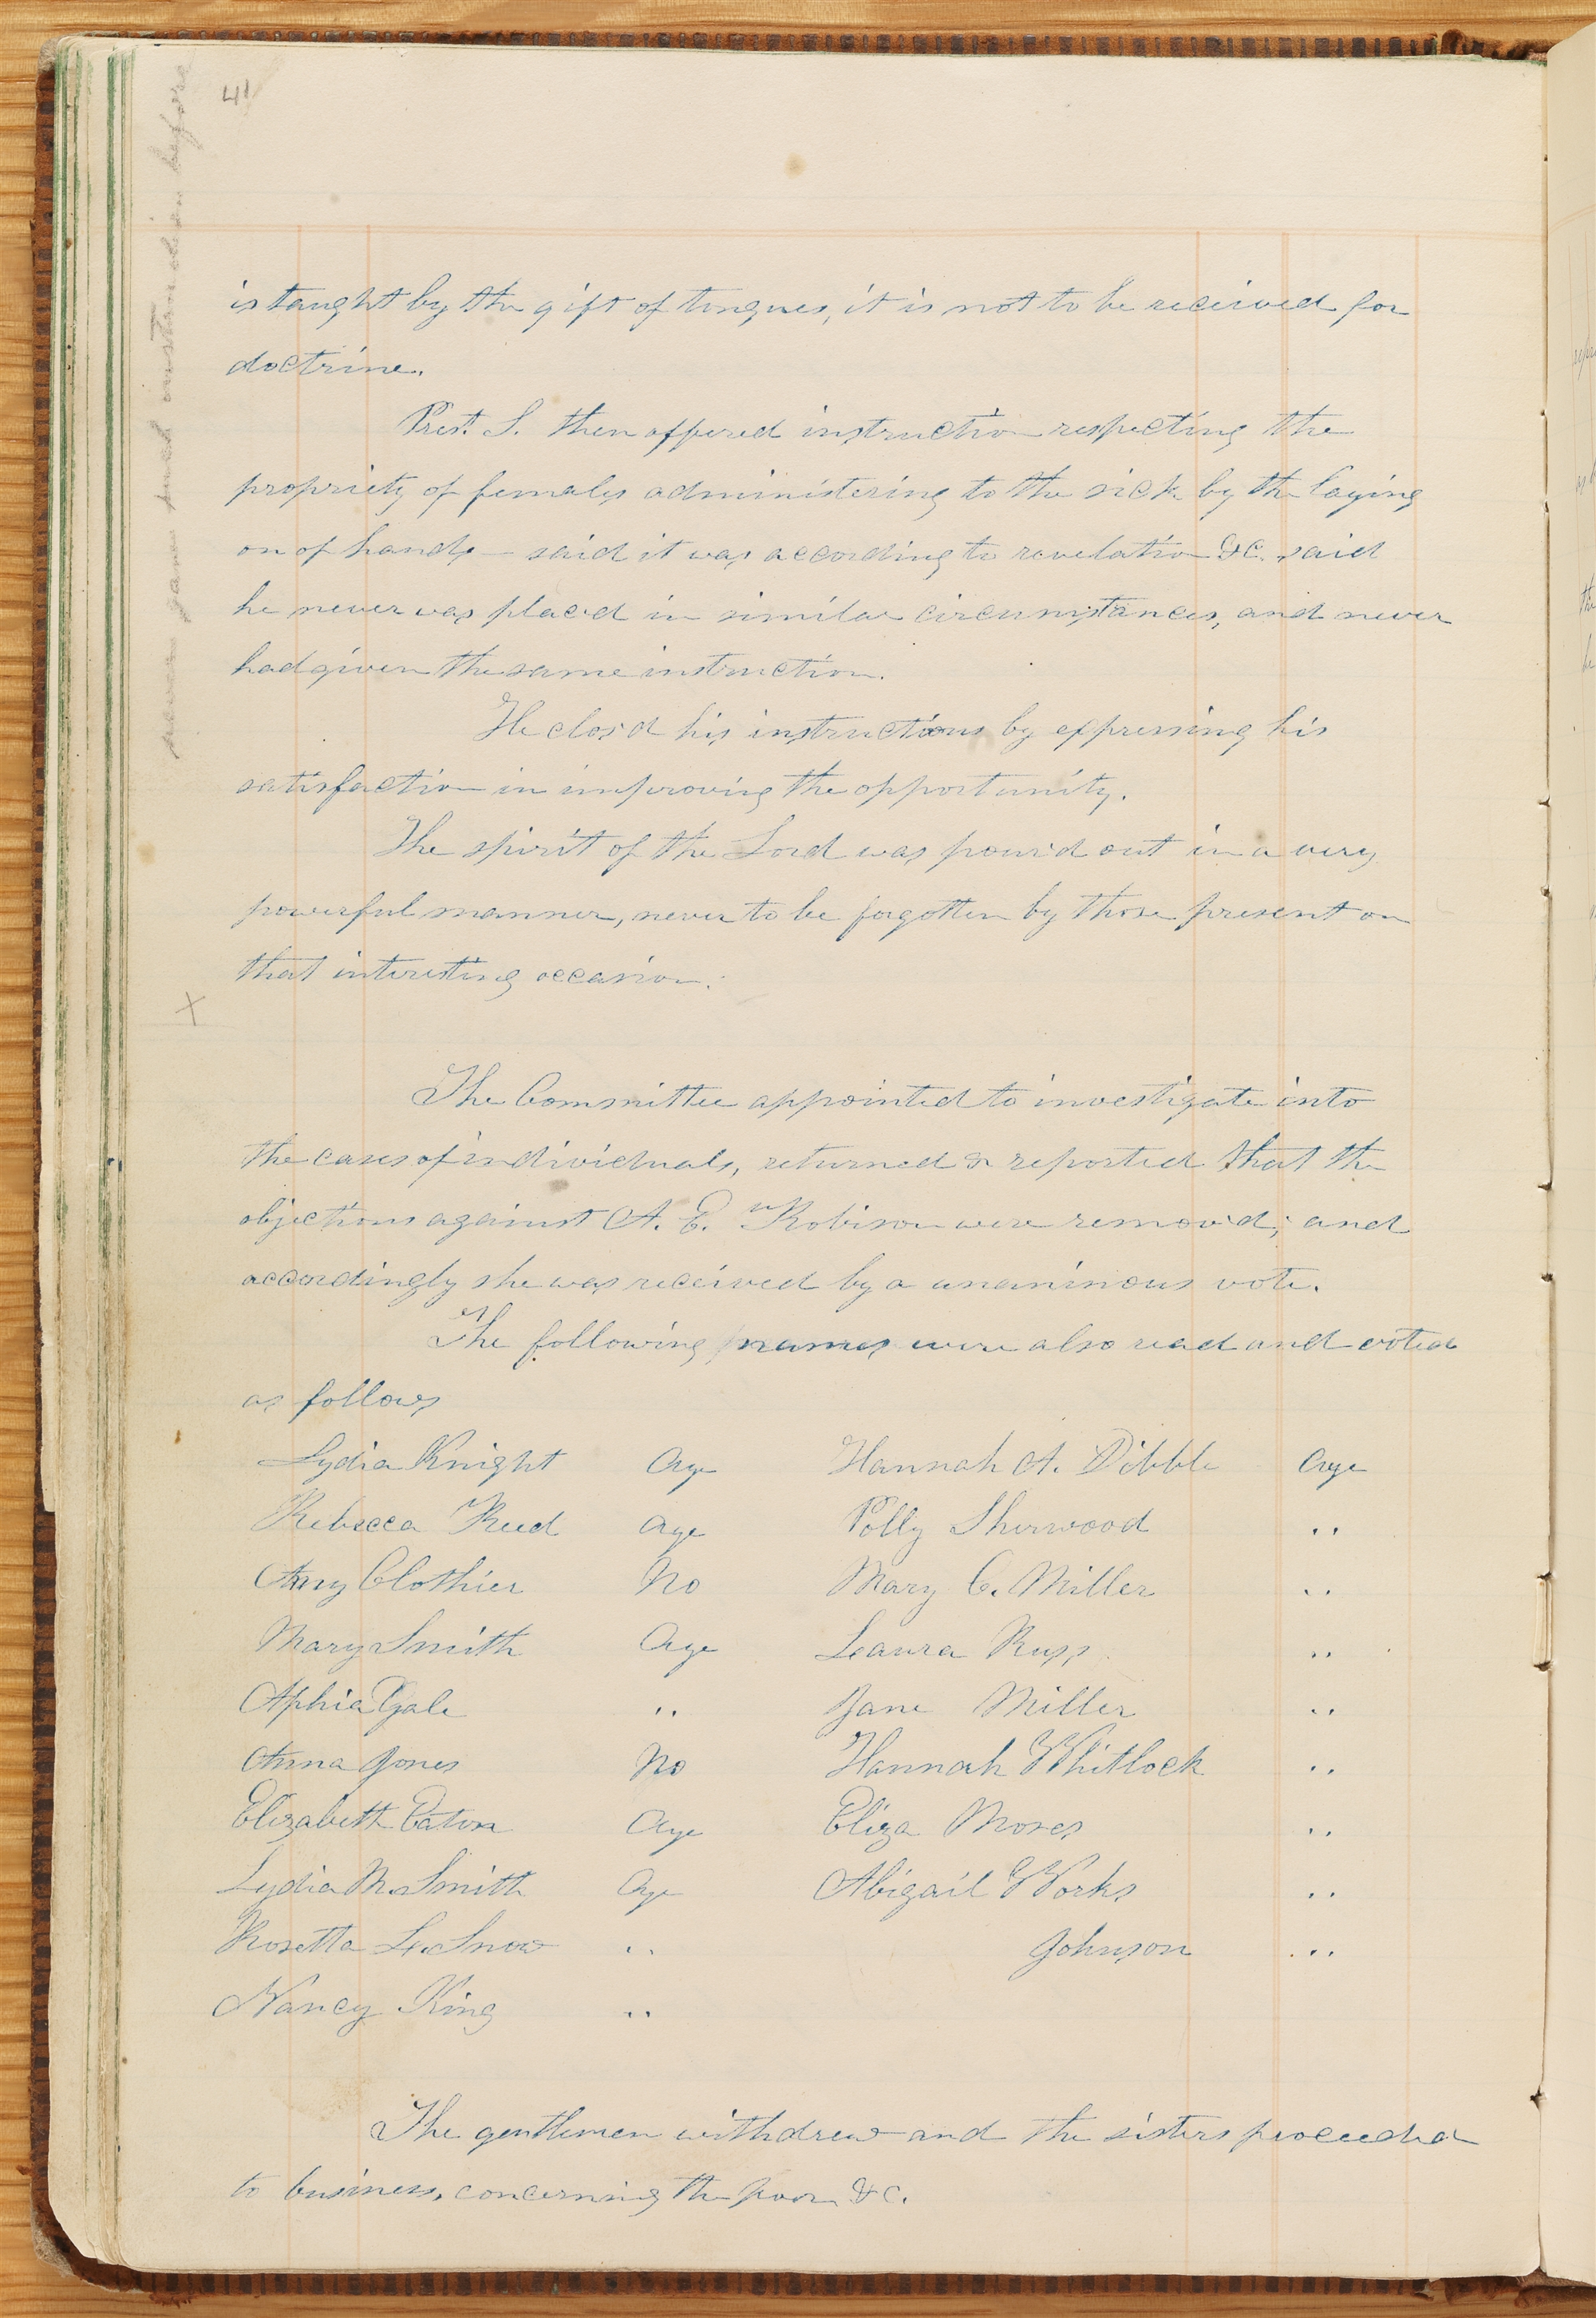 41
never gave such instruction before
is taught by the gift of tongues, it is not to be received for
doctrine.
Prest. S. then offered instruction respecting the
propriety of females administering to the sick by the laying
on of hands — said it was according to revelation &C. said
he never was placed in similar circumstances, and never
had given the same instruction.
He clos'd his instructions by expressing his
satisfaction in improving the opportunity.
The spirit of the Lord was pour'd out in a very
powerful manner, never to be forgotten by those present on
that interesting occasion.
X
The Committee appointed to investigate into
the cases of individuals, returned & reported that the
objections against A. E. Robison were remov'd; and
accordingly she was received by a unanimous vote.
The following names were also read and voted
as follows
Lydia Knight Aye Hannah A. Dibble Aye
Rebecca Reed Aye Polly Sherwood ,,
Amy Clothier No Mary C. Miller ,,
Mary Smith Aye Leaura Russ ,,
Aphia Yale ,, Jane Miller ,,
Anna Jones No Hannah Whitlock ,,
Elizabeth Eaton Aye Eliza Moses ,,
Lydia M. Smith Aye Abigail Works ,,
Rosetta L. Snow ,, Johnson ,,
Nancy King ,,
The gentlemen withdrew and the sisters proceeded
to business, concerning the poor &C.